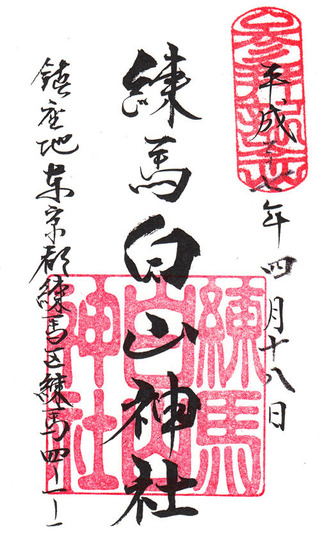 平成廿七年四月十八日
練馬白山神社
鎮座地東京都練馬区練馬四ー一ー
練馬
白山
神社